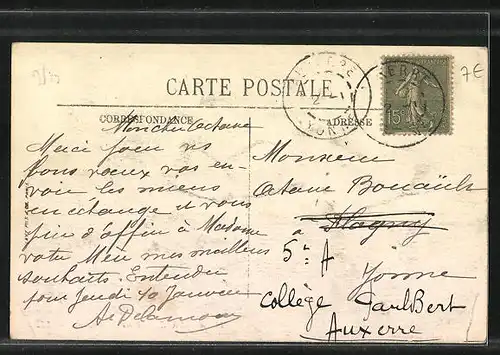 7€
CARTE POSTALE
CORRESPONDANCE
ADRESSE
AUXERRE
YONNE
15c
Mon cher Octave
Merci pour vos
bons voeux vos en-
voie les miens
en échange et vous
prie d'offrir à Madame
votre Mère mes meilleurs
souhaits. Entendu
pour Jeudi 10 Janvier
Monsieur
Octave
à Magny
5e A
Yonne
Collège Paul Bert
Auxerre